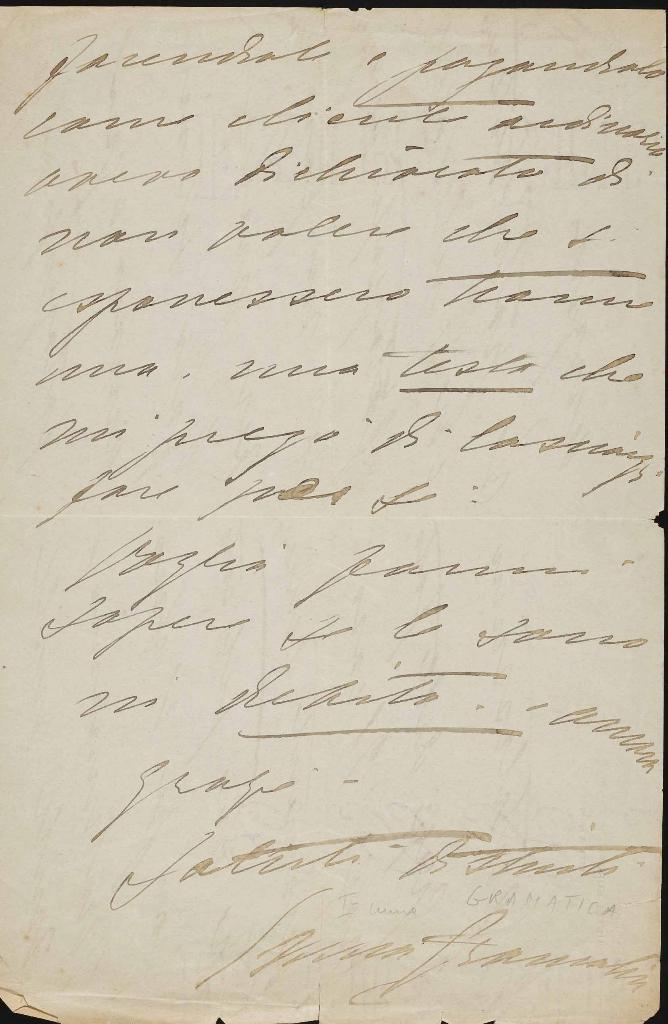 facendole e pagandole
come cliente ordinario
avevo dichiarato di
non volere che si
esponessero tranne
una, una testa che
mi pregò di lasciargli
fare per sé:
Voglia farmi
sapere se le sono
in debito. - ancora
grazie -
Saluti distinti
Irma GRAMATICA
Irma Gramatica